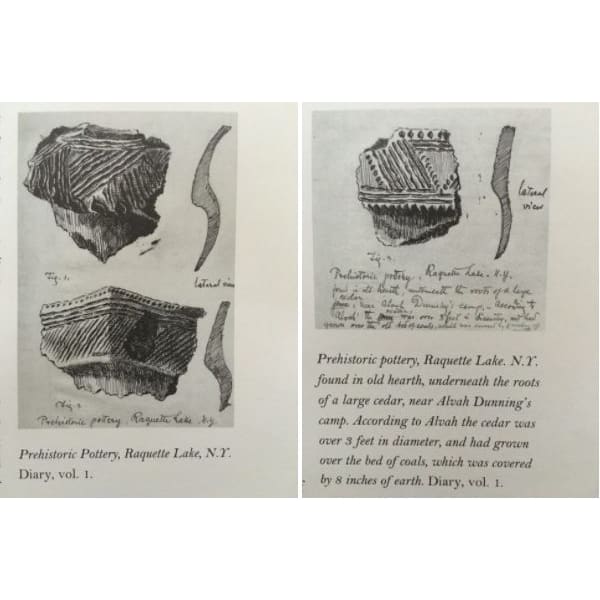 Fig. 1.
lateral view
Fig. 2
Prehistoric pottery, Raquette Lake, N.Y.
Prehistoric Pottery, Raquette Lake, N.Y.
Diary, vol. 1.
lateral
view
Prehistoric pottery, Raquette Lake. N.Y.
found in old hearth, underneath the roots of a large
cedar
near Alvah Dunning's camp, - According to
Alvah the was over 3 feet in diameter, and had
grown over the old bed of coals, which was covered by
Prehistoric pottery, Raquette Lake. N.Y.
found in old hearth, underneath the roots
of a large cedar, near Alvah Dunning's
camp. According to Alvah the cedar was
over 3 feet in diameter, and had grown
over the bed of coals, which was covered
by 8 inches of earth. Diary, vol. 1.